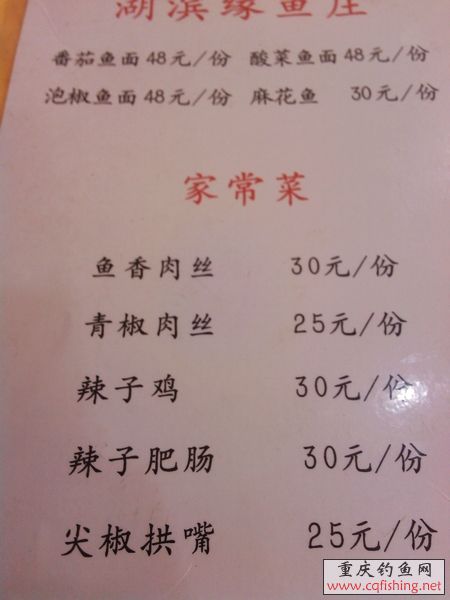 湖滨缘鱼庄
番茄鱼面 48元/份 酸菜鱼面 48元/份
泡椒鱼面 48元/份 麻花鱼 30元/份
家常菜
鱼香肉丝 30元/份
青椒肉丝 25元/份
辣子鸡 30元/份
辣子肥肠 30元/份
尖椒拱嘴 25元/份
重庆钓鱼网
www.cqfishing.net